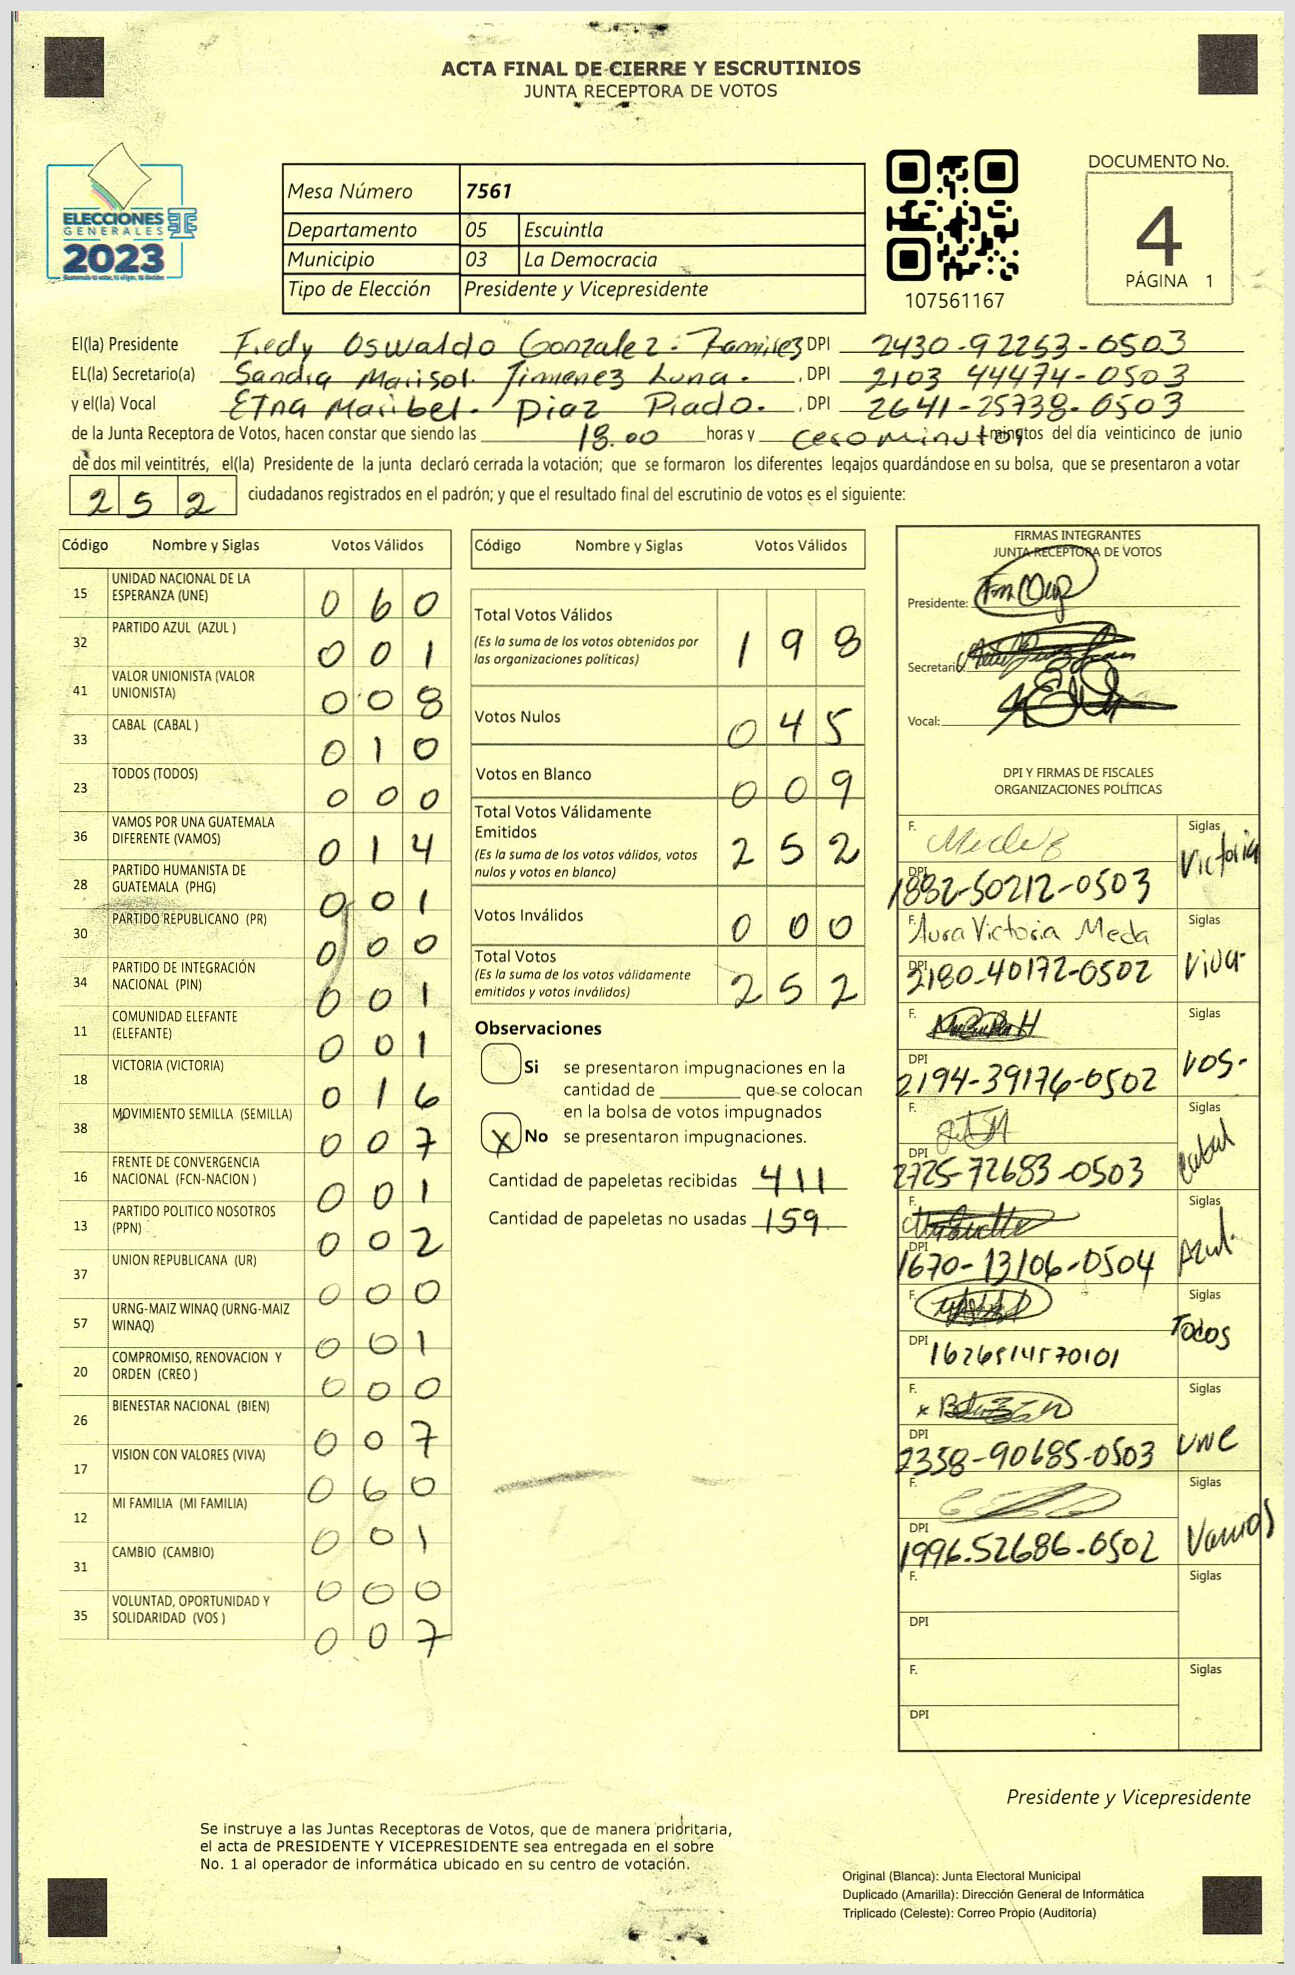 ACTA FINAL DE CIERRE Y ESCRUTINIOS
JUNTA RECEPTORA DE VOTOS
ELECCIONES
GENERALES
2023
Mesa Número 7561
Departamento 05 Escuintla
Municipio 03 La Democracia
Tipo de Elección Presidente y Vicepresidente
107561167
DOCUMENTO No.
4
PÁGINA 1
El(la) Presidente Fredy Oswaldo Gonzalez. Ramirez DPI 2430-92253-0503
EL(la) Secretario(a) Sandra Marisol. Jimenez Luna. , DPI 2103 44474-0503
y el(la) Vocal Etna Maribel. Diaz Prado. , DPI 2641-25738-0503
de la Junta Receptora de Votos, hacen constar que siendo las 18.00 horas y cero minutos minutos del día veinticinco de junio
de dos mil veintitrés, el(la) Presidente de la junta declaró cerrada la votación; que se formaron los diferentes legajos guardándose en su bolsa, que se presentaron a votar
252 ciudadanos registrados en el padrón; y que el resultado final del escrutinio de votos es el siguiente:
Código Nombre y Siglas Votos Válidos
15 UNIDAD NACIONAL DE LA ESPERANZA (UNE) 060
32 PARTIDO AZUL (AZUL ) 001
41 VALOR UNIONISTA (VALOR UNIONISTA) 008
33 CABAL (CABAL ) 010
23 TODOS (TODOS) 000
36 VAMOS POR UNA GUATEMALA DIFERENTE (VAMOS) 014
28 PARTIDO HUMANISTA DE GUATEMALA (PHG) 001
30 PARTIDO REPUBLICANO (PR) 000
34 PARTIDO DE INTEGRACIÓN NACIONAL (PIN) 001
11 COMUNIDAD ELEFANTE (ELEFANTE) 001
18 VICTORIA (VICTORIA) 016
38 MOVIMIENTO SEMILLA (SEMILLA) 007
16 FRENTE DE CONVERGENCIA NACIONAL (FCN-NACION ) 001
13 PARTIDO POLITICO NOSOTROS (PPN) 002
37 UNION REPUBLICANA (UR) 000
57 URNG-MAIZ WINAQ (URNG-MAIZ WINAQ) 001
20 COMPROMISO, RENOVACION Y ORDEN (CREO ) 000
26 BIENESTAR NACIONAL (BIEN) 007
17 VISION CON VALORES (VIVA) 060
12 MI FAMILIA (MI FAMILIA) 001
31 CAMBIO (CAMBIO) 000
35 VOLUNTAD, OPORTUNIDAD Y SOLIDARIDAD (VOS ) 007
Código Nombre y Siglas Votos Válidos
Total Votos Válidos 198
(Es la suma de los votos obtenidos por
las organizaciones políticas)
Votos Nulos 045
Votos en Blanco 009
Total Votos Válidamente
Emitidos 252
(Es la suma de los votos válidos, votos
nulos y votos en blanco)
Votos Inválidos 000
Total Votos 252
(Es la suma de los votos válidamente
emitidos y votos inválidos)
Observaciones
Si se presentaron impugnaciones en la
cantidad de ________ que se colocan
en la bolsa de votos impugnados
X No se presentaron impugnaciones.
Cantidad de papeletas recibidas 411
Cantidad de papeletas no usadas 159
FIRMAS INTEGRANTES
JUNTA RECEPTORA DE VOTOS
Presidente:
Secretario:
Vocal:
DPI Y FIRMAS DE FISCALES
ORGANIZACIONES POLÍTICAS
F. Siglas Victoria
DPI 1882-50212-0503
F. Aura Victoria Meda Siglas Viva-
DPI 2180-40172-0502
F. Siglas VOS-
DPI 2194-39176-0502
F. Siglas Cabal
DPI 2725-72683-0503
F. Siglas Azul.
DPI 1670-13106-0504
F. Siglas Todos
DPI
F. Siglas UNE
DPI 2358-90685-0503
F. Siglas Vamos
DPI 1996.52686-0502
F. Siglas
DPI
F. Siglas
DPI
Presidente y Vicepresidente
Se instruye a las Juntas Receptoras de Votos, que de manera prioritaria,
el acta de PRESIDENTE Y VICEPRESIDENTE sea entregada en el sobre
No. 1 al operador de informática ubicado en su centro de votación.
Original (Blanca): Junta Electoral Municipal
Duplicado (Amarilla): Dirección General de Informática
Triplicado (Celeste): Correo Propio (Auditoría)